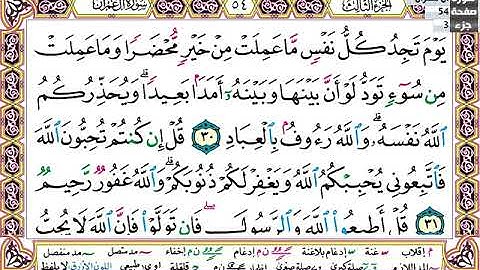 الجزء الثالث ٥٤ سورة آل عمران
54 صفحة
3 جزء
يَوْمَ تَجِدُ كُلُّ نَفْسٍ مَّا عَمِلَتْ مِنْ خَيْرٍ مُّحْضَرًا وَمَا عَمِلَتْ
مِن سُوٓءٍ تَوَدُّ لَوْ أَنَّ بَيْنَهَا وَبَيْنَهُۥٓ أَمَدًۢا بَعِيدًا ۗ وَيُحَذِّرُكُمُ
ٱللَّهُ نَفْسَهُۥ ۗ وَٱللَّهُ رَءُوفٌۢ بِٱلْعِبَادِ ٣٠ قُلْ إِن كُنتُمْ تُحِبُّونَ ٱللَّهَ
فَٱتَّبِعُونِى يُحْبِبْكُمُ ٱللَّهُ وَيَغْفِرْ لَكُمْ ذُنُوبَكُمْ ۗ وَٱللَّهُ غَفُورٌ رَّحِيمٌ
٣١ قُلْ أَطِيعُوا۟ ٱللَّهَ وَٱلرَّسُولَ ۖ فَإِن تَوَلَّوْا۟ فَإِنَّ ٱللَّهَ لَا يُحِبُّ
م إقلاب غنة إدغام بلاغنة ن م إدغام ن م إخفاء مد متصل مد منفصل